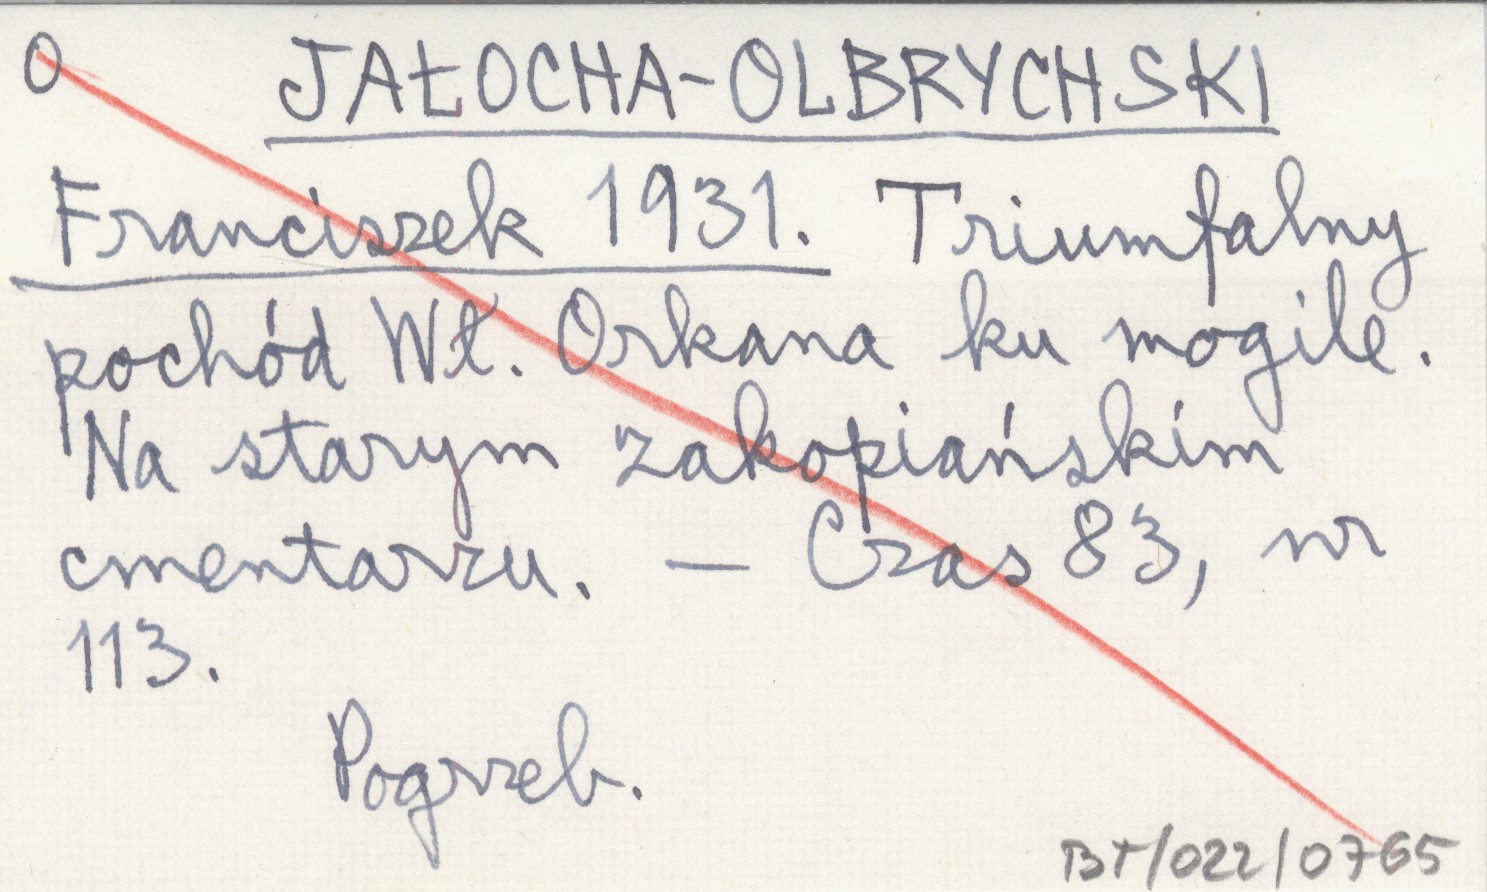 O JAŁOCHA-OLBRYCHSKI
Franciszek 1931. Triumfalny
pochód Wł. Orkana ku mogile.
Na starym zakopiańskim
cmentarzu. — Czas 83, nr
113.
Pogrzeb.
BT/022/0765